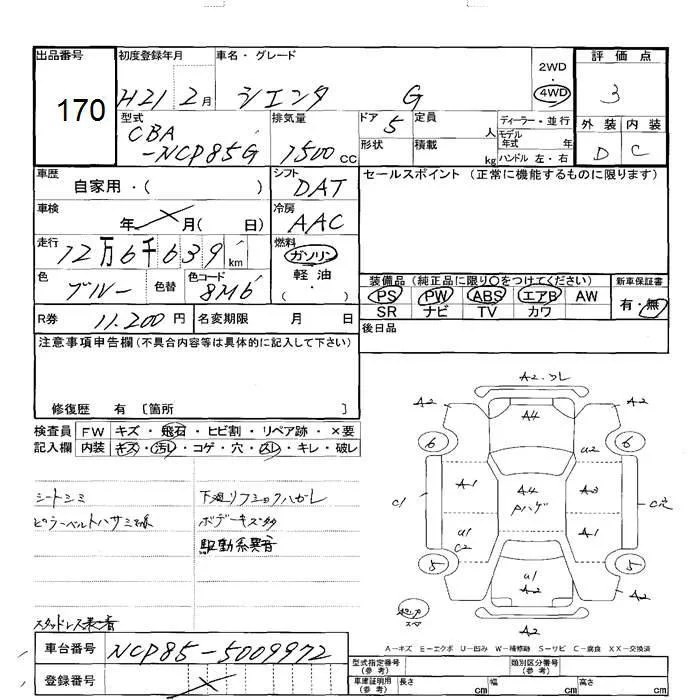 出品番号 初度登録年月 車名・グレード 2WD・4WD 評価点
170 H21 2月 シエンタ G 3
型式 排気量 ドア 定員 ディーラー・並行 外装 内装
CBA-NCP85G 1500cc 5 人 モデル年式 年 D C
形状 積載 kg ハンドル 左・右
車歴 シフト セールスポイント (正常に機能するものに限ります)
自家用・( ) DAT
車検 冷房
年 月( 日) AAC
走行 燃料
12万6千639km ガソリン
軽油
・( )
色 色替 色コード 装備品 (純正品に限り○をつけてください) 新車保証書
ブルー 8M6 PS PW ABS エアB AW 有・無
SR ナビ TV カワ
R券 11,200円 名変期限 月 日 後日品
注意事項申告欄 (不具合内容等は具体的に記入して下さい)
修復歴 有 〔箇所 〕
検査員 FW キズ・飛石・ヒビ割・リペア跡・×要
記入欄 内装 キズ・汚レ・コゲ・穴・凹レ・キレ・破レ
シートシミ
ピラーベルトハサミ様
下廻リフショックハガレ
ボデーキズ多
駆動系異音
スタッドレス装着
A2
A2 A4 A2
6 6
U2
C1 A1 A4 A3
Pハゲ
U1 A1
C2
5 5
U1
A2 A2 A2
A2
A-キズ E-エクボ U-凹み W-補修跡 S-サビ C-腐食 XX-交換済
車台番号 NCP85-5009972
登録番号
型式指定番号 (参考) 類別区分番号 (参考)
車庫証明用 (参考) 長さ cm 幅 cm 高さ cm